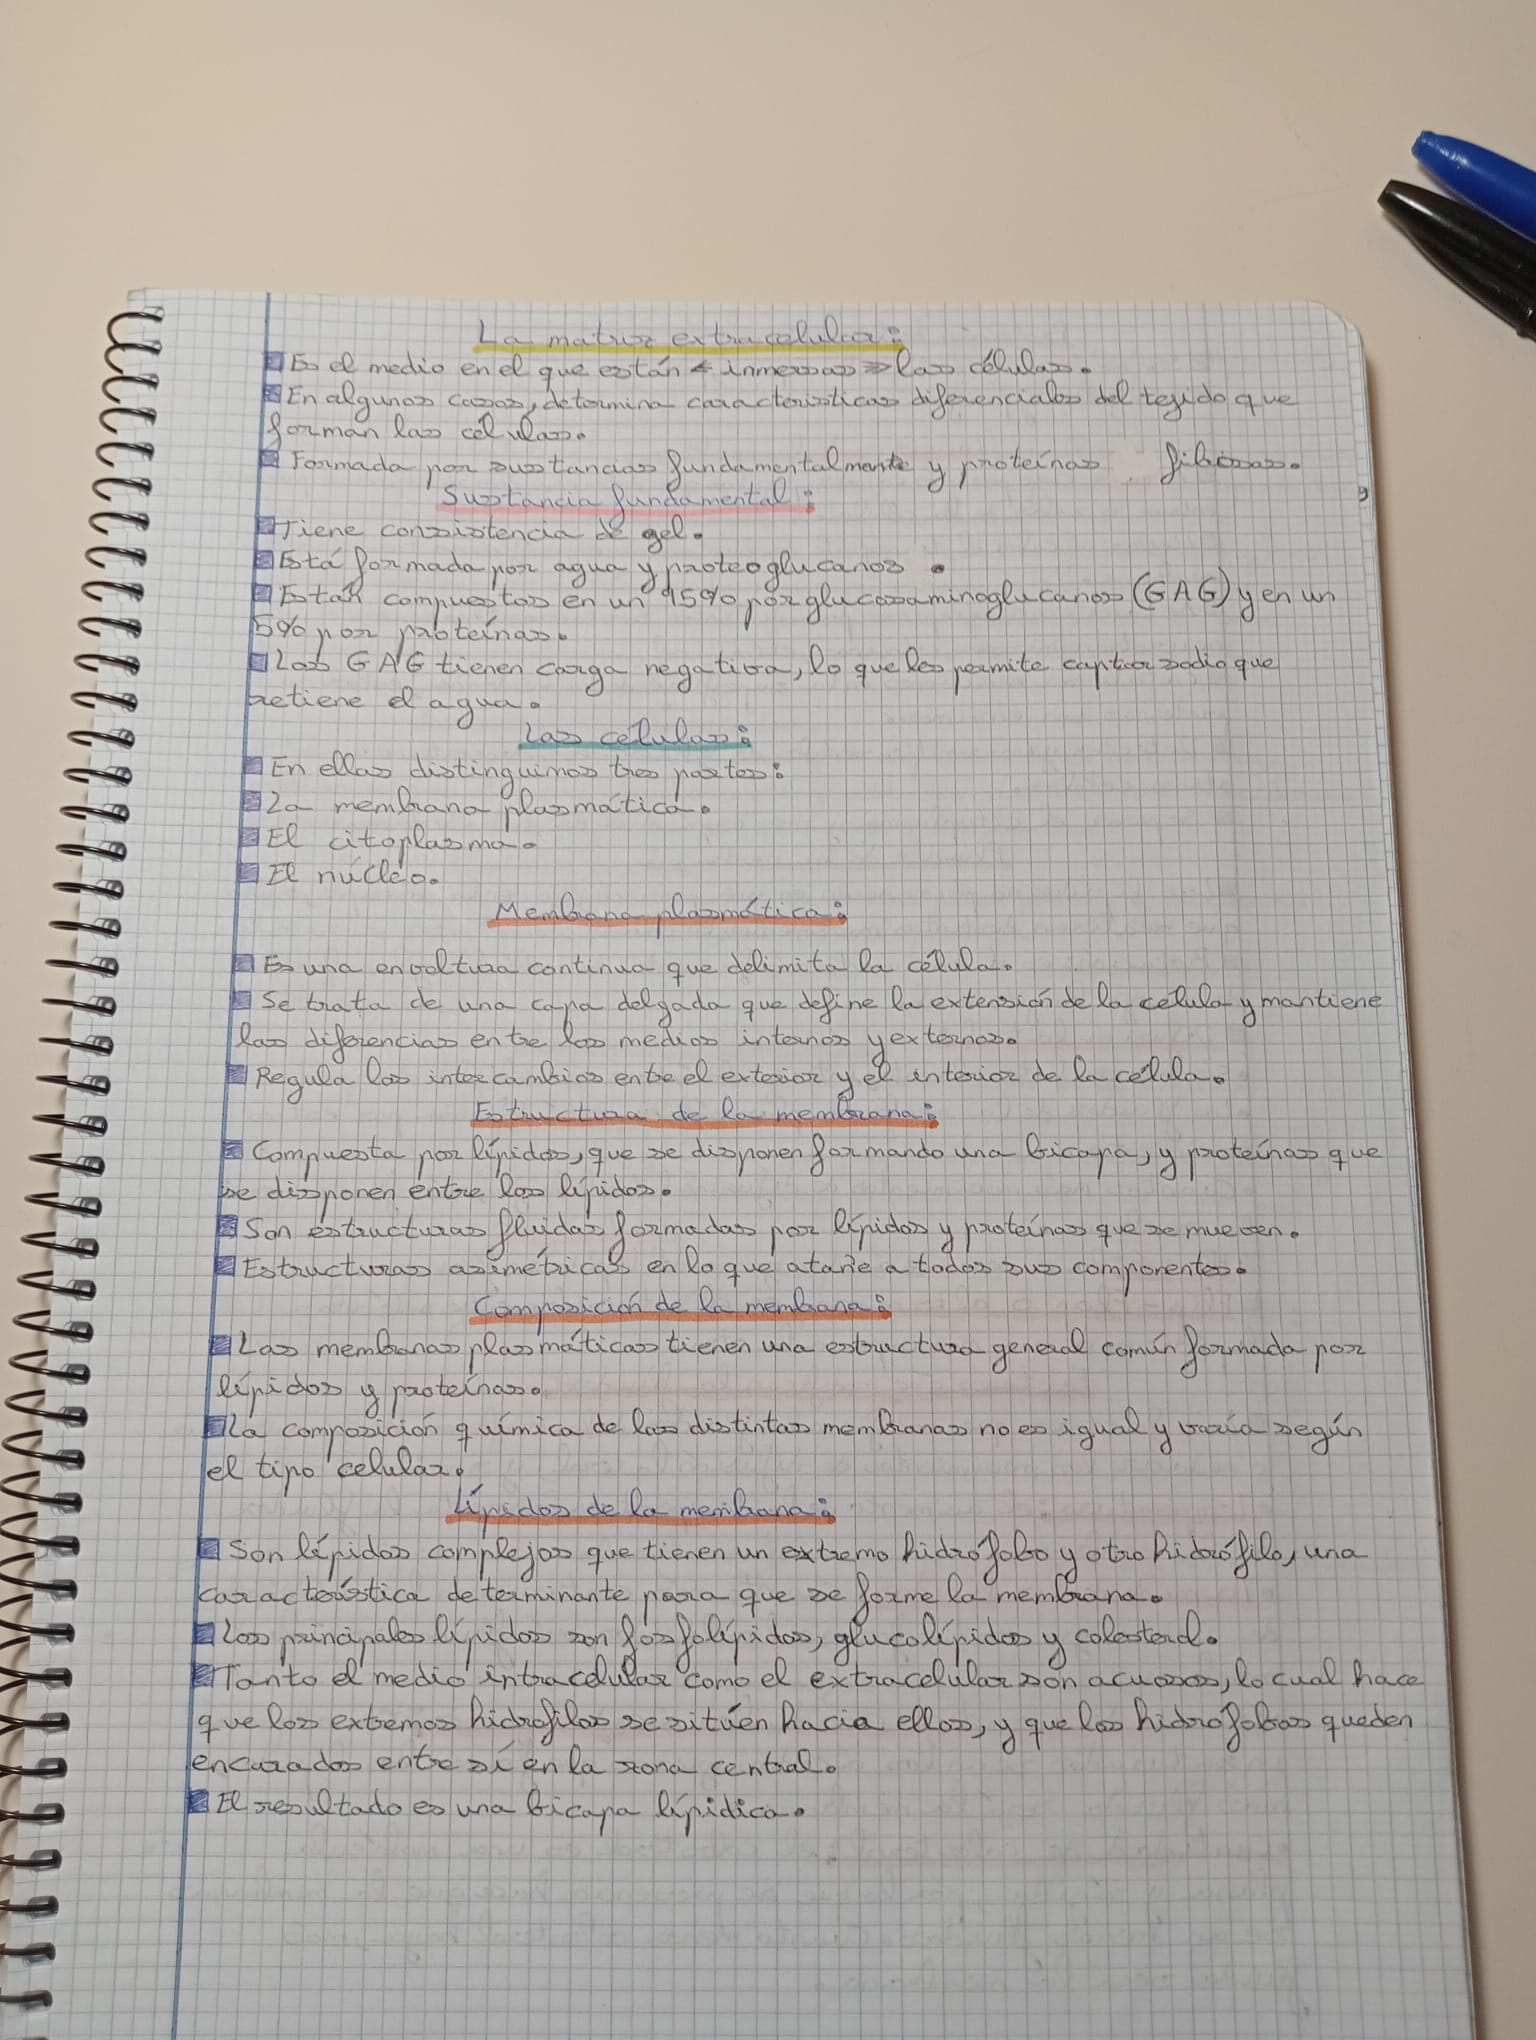 La matriz extracelular:
Es el medio en el que están «inmersas» las células.
En algunos casos, determina características diferenciales del tejido que
forman las células.
Formada por sustancias fundamentalmente y proteínas fibrosas.
Sustancia fundamental:
Tiene consistencia de gel.
Está formada por agua y proteoglucanos.
Están compuestos en un 95% por glucosaminoglucanos (GAG) y en un
5% por proteínas.
Los GAG tienen carga negativa, lo que les permite captar sodio que
retiene el agua.
Las células:
En ellas distinguimos tres partes:
La membrana plasmática.
El citoplasma.
El núcleo.
Membrana plasmática:
Es una envoltura continua que delimita la célula.
Se trata de una capa delgada que define la extensión de la célula y mantiene
las diferencias entre los medios internos y externos.
Regula los intercambios entre el exterior y el interior de la célula.
Estructura de la membrana:
Compuesta por lípidos, que se disponen formando una bicapa, y proteínas que
se disponen entre los lípidos.
Son estructuras fluidas formadas por lípidos y proteínas que se mueven.
Estructuras asimétricas en lo que atañe a todos sus componentes.
Composición de la membrana:
Las membranas plasmáticas tienen una estructura general común formada por
lípidos y proteínas.
La composición química de las distintas membranas no es igual y varía según
el tipo celular.
Lípidos de la membrana:
Son lípidos complejos que tienen un extremo hidrófobo y otro hidrófilo, una
característica determinante para que se forme la membrana.
Los principales lípidos son fosfolípidos, glucolípidos y colesterol.
Tanto el medio intracelular como el extracelular son acuosos, lo cual hace
que los extremos hidrofilos se sitúen hacia ellos, y que los hidrófobos queden
encarados entre sí en la zona central.
El resultado es una bicapa lipídica.